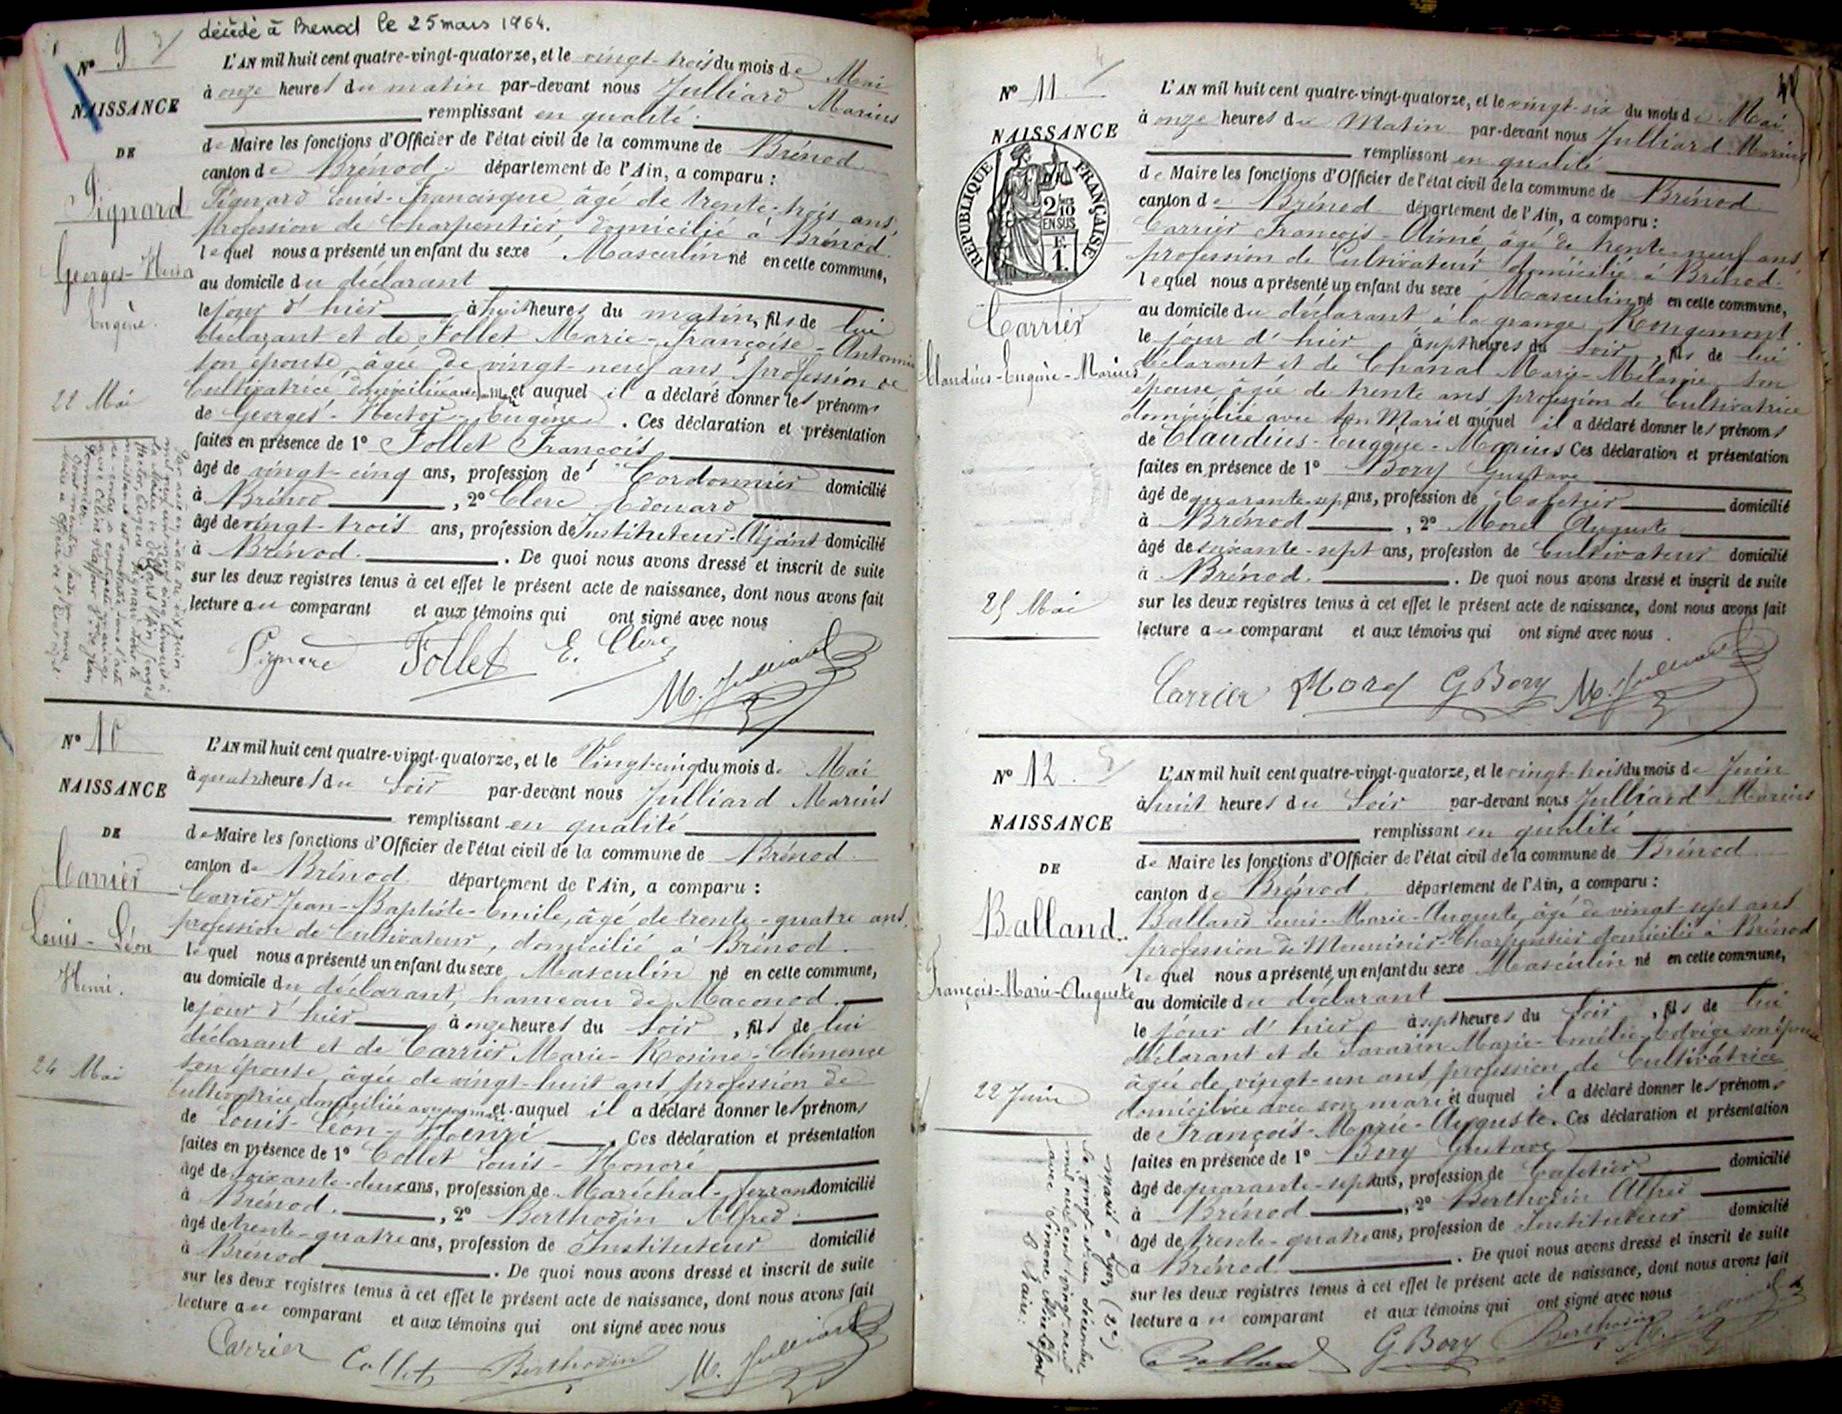 décédé à Brenod le 25 mars 1964.
N° 9
NAISSANCE
DE
Pignard
Georges-Hector
Eugène.
22 Mai
L'AN mil huit cent quatre-vingt-quatorze, et le vingt-trois du mois de Mai
à onze heures du matin par-devant nous Julliard Marius
remplissant en qualité
de Maire les fonctions d'Officier de l'état civil de la commune de Brénod
canton de Brénod. département de l'Ain, a comparu :
Pignard Louis-Francisque âgé de trente-trois ans,
profession de Charpentier, domicilié à Brénod.
lequel nous a présenté un enfant du sexe Masculin né en cette commune,
au domicile du déclarant
le jour d'hier à huit heures du matin, fils de lui
déclarant et de Follet Marie-Françoise-Antonie
son épouse, âgée de vingt-neuf ans profession de
Cultivatrice domiciliée et auquel il a déclaré donner les prénoms
de Georges-Hector-Eugène. Ces déclaration et présentation
faites en présence de 1° Follet François
âgé de vingt-cinq ans, profession de Cordonnier domicilié
à Brénod, 2° Clerc Edouard
âgé de vingt-trois ans, profession de Instituteur-Adjoint domicilié
à Brénod. De quoi nous avons dressé et inscrit de suite
sur les deux registres tenus à cet effet le présent acte de naissance, dont nous avons fait
lecture au comparant et aux témoins qui ont signé avec nous
Pignard Follet E. Clerc
M. Julliard
N° 10
NAISSANCE
DE
Carrier
Louis-Léon
Henri.
24 Mai
L'AN mil huit cent quatre-vingt-quatorze, et le Vingt-cinq du mois de Mai
à quatre heures du Soir par-devant nous Julliard Marius
remplissant en qualité
de Maire les fonctions d'Officier de l'état civil de la commune de Brénod.
canton de Brénod. département de l'Ain, a comparu :
Carrier Jean-Baptiste-Emile, âgé de trente-quatre ans,
profession de Cultivateur, domicilié à Brénod.
lequel nous a présenté un enfant du sexe Masculin né en cette commune,
au domicile du déclarant, hameau de Maconod.
le jour d'hier à onze heures du Soir, fils de lui
déclarant et de Carrier Marie-Rosine-Clémence
son épouse, âgée de vingt-huit ans profession de
Cultivatrice domiciliée avec son mari et auquel il a déclaré donner les prénoms
de Louis-Léon-Henri. Ces déclaration et présentation
faites en présence de 1° Collet Louis-Honoré
âgé de soixante-deux ans, profession de Maréchal-ferrant domicilié
à Brénod., 2° Berthodin Alfred.
âgé de trente-quatre ans, profession de Instituteur domicilié
à Brénod. De quoi nous avons dressé et inscrit de suite
sur les deux registres tenus à cet effet le présent acte de naissance, dont nous avons fait
lecture au comparant et aux témoins qui ont signé avec nous
Carrier Collet Berthodin M. Julliard
N° 11.
NAISSANCE
RÉPUBLIQUE FRANÇAISE
2/10
EN SUS
F.
1.
Carrier
Claudius-Eugène-Marius
25 Mai
L'AN mil huit cent quatre-vingt-quatorze, et le vingt-six du mois de Mai
à onze heures du Matin par-devant nous Julliard Marius
remplissant en qualité
de Maire les fonctions d'Officier de l'état civil de la commune de Brénod
canton de Brénod département de l'Ain, a comparu :
Carrier François-Aimé, âgé de trente-neuf ans
profession de Cultivateur domicilié à Brénod.
lequel nous a présenté un enfant du sexe Masculin né en cette commune,
au domicile du déclarant à la grange Rougemont
le jour d'hier à sept heures du Soir, fils de lui
déclarant et de Chanal Marie-Mélanie, son
épouse, âgée de trente ans profession de Cultivatrice
domiciliée avec son Mari et auquel il a déclaré donner les prénoms
de Claudius-Eugène-Marius Ces déclaration et présentation
faites en présence de 1° Bory Gustave
âgé de quarante-sept ans, profession de Cafetier domicilié
à Brénod, 2° Morel Auguste
âgé de soixante-sept ans, profession de Cultivateur domicilié
à Brénod. De quoi nous avons dressé et inscrit de suite
sur les deux registres tenus à cet effet le présent acte de naissance, dont nous avons fait
lecture au comparant et aux témoins qui ont signé avec nous.
Carrier Morel G Bory M. Julliard
N° 12.
NAISSANCE
DE
Balland.
François-Marie-Auguste
22 Juin
marié à Lyon (2e)
le vingt et un décembre
mil neuf cent vingt neuf
avec Simone
Le Maire:
L'AN mil huit cent quatre-vingt-quatorze, et le vingt-trois du mois de Juin
à huit heures du Soir par-devant nous Julliard Marius
remplissant en qualité
de Maire les fonctions d'Officier de l'état civil de la commune de Brénod
canton de Brénod. département de l'Ain, a comparu :
Balland Louis-Marie-Auguste, âgé de vingt-sept ans
profession de Menuisier-Charpentier domicilié à Brénod
lequel nous a présenté un enfant du sexe Masculin né en cette commune,
au domicile du déclarant
le jour d'hier à sept heures du Soir, fils de lui
déclarant et de Savarin Marie-Emélie-Edvige son épouse
âgée de vingt-un ans profession de Cultivatrice
domiciliée avec son mari et auquel il a déclaré donner les prénoms
de François-Marie-Auguste. Ces déclaration et présentation
faites en présence de 1° Bory Gustave
âgé de quarante-sept ans, profession de Cafetier domicilié
à Brénod, 2° Berthodin Alfred
âgé de trente-quatre ans, profession de Instituteur domicilié
à Brénod. De quoi nous avons dressé et inscrit de suite
sur les deux registres tenus à cet effet le présent acte de naissance, dont nous avons fait
lecture au comparant et aux témoins qui ont signé avec nous
Balland G Bory Berthodin M. Julliard